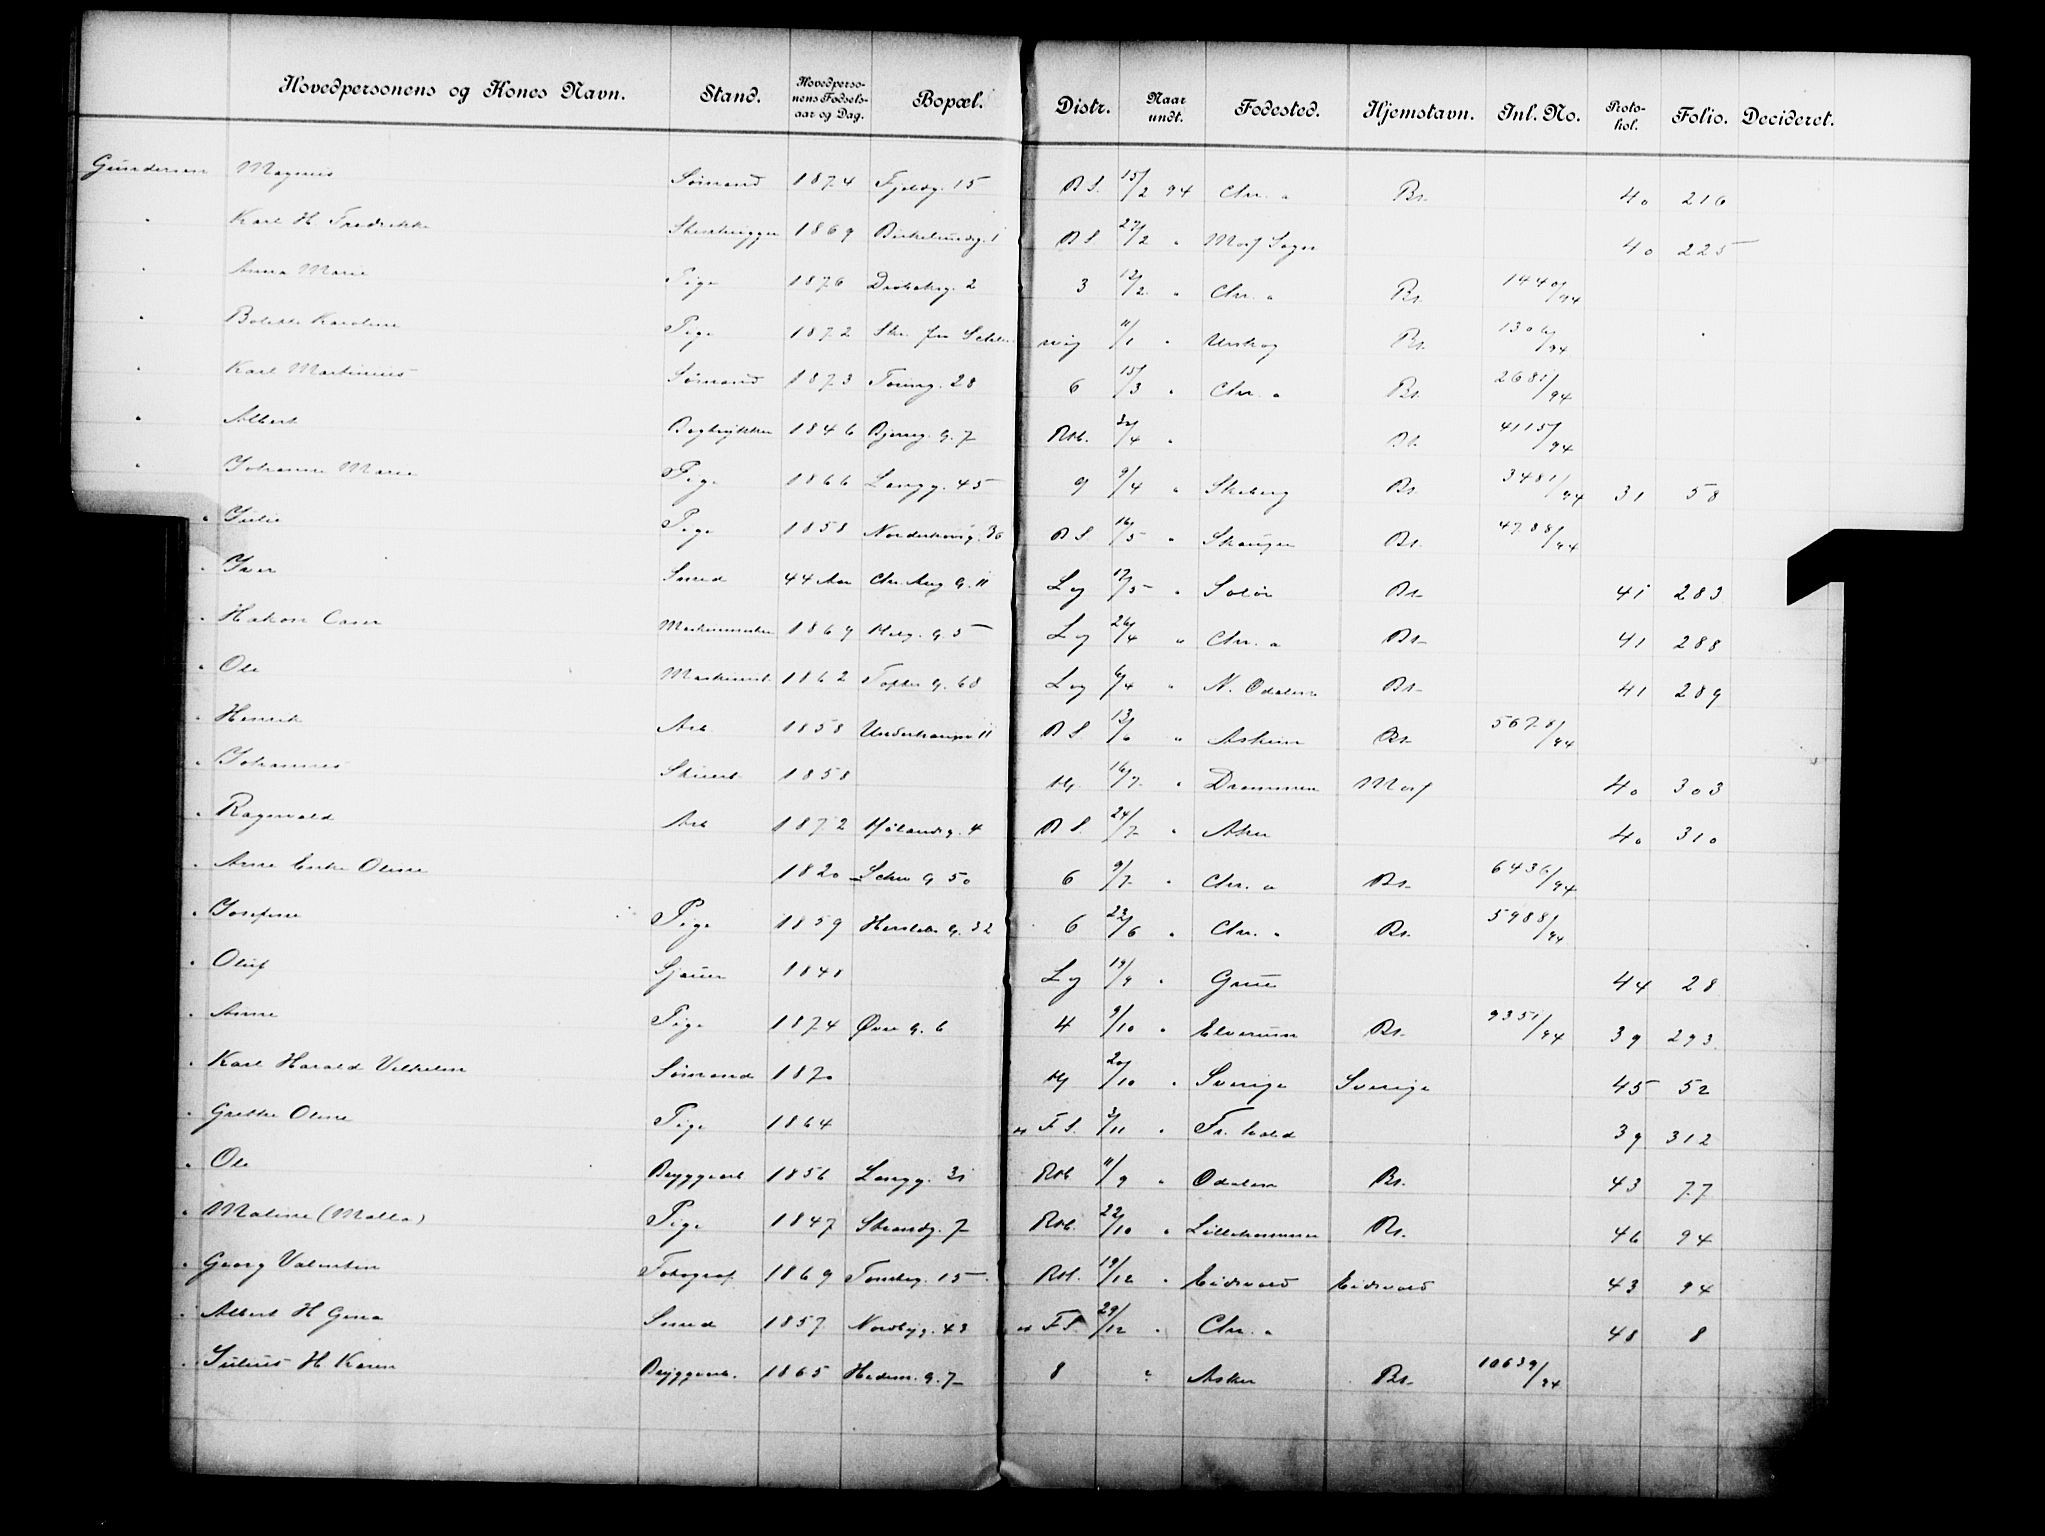 Hovedpersonens og Kones Navn. Stand. Hovedpersonens Fødselsaar og Dag. Bopæl. Distr. Naar undt. Fødested. Hjemstavn. Inl. No. Protokol. Folio. Decideret.
Gundersen Magnus Sømand 1874 Fjeldg. 15 B S. 15/2 94 Chr. a Bs. 40 216
" Karl H Fredrikke 1869 Birkelundg. 1 B S. 27/2 " Moss Sogn 40 225
" Anna Marie Pige 1876 Drøbakg. 2 3 12/2 " Chr. a Bs. 1440/94
" Bolette Karoline Pige 1872 11/1 " Urskog Bs. 94
" Karl Martinius Sømand 1873 28 6 15/3 " Chr. a Bs. 2681/94
" Albert Bogtrykker 1846 Bjerreg. G. 7 /4 " Bs. 4115/94
" Johanne Marie Pige 1866 Langg. 45 9 9/4 " Skiberg Bs. 3481/94 31 58
" Julie Pige 1858 Norderhovg. 36 B S 16/5 " Skauger Bs. 4788/94
" Iver Smed 44 Aar Chr. Aug G. 11 Lg 17/5 " Solør Bs. 41 283
" Hakon Caser 1869 G. 5 Lg 26/4 " Chr. a Bs. 41 288
" Ole Maskinist 1862 Toftes G. 68 Lg 6/4 " N. Odalen Bs. 41 289
" Henrik Arb 1858 11 B S 13/6 " Askim Bs. 5678/94
" Johannes 1858 16/7 " Drammen Moss 40 303
" Ragnvald Arb 1872 Hølandsg. 4 B S. 24/7 " Aker 40 310
" Anne Oline 1820 Schw G 50 6 9/7 " Chr. a Bs. 6436/94
" Josefine Pige 1859 Herslebs G. 32 6 22/6 " Chr. " Bs. 5988/94
" Oluf Sjauer 1848 Lg 19/9 " Grue 44 28
" Anne Pige 1874 Øvre G. 6 4 9/10 " Elverum Bs. 9351/94 39 293
" Karl Harald Vilhelm Sømand 1870 20/10 " Sverige Sverige 45 52
" Grethe Oline Pige 1864 F S. 3/11 " Fr. hald 39 312
" Ole Bryggearb 1856 Langg. 31 11/9 " Odalen Bs. 43 77
" Maline (Malla) Pige 1847 Strandg. 7 22/10 " Lillehammer Bs. 46 94
" Georg Valentin Fotograf 1869 Tønsbg. 15 19/12 " Eidsvold Eidsvold 43 94
" Albert H Gina Smed 1857 Nordbyg. 43 F S. 29/12 " Chr. a 48 8
" Julius H Karen Bryggearb. 1865 Hedem. G. 7 8 " Asker Bs. 10639/94